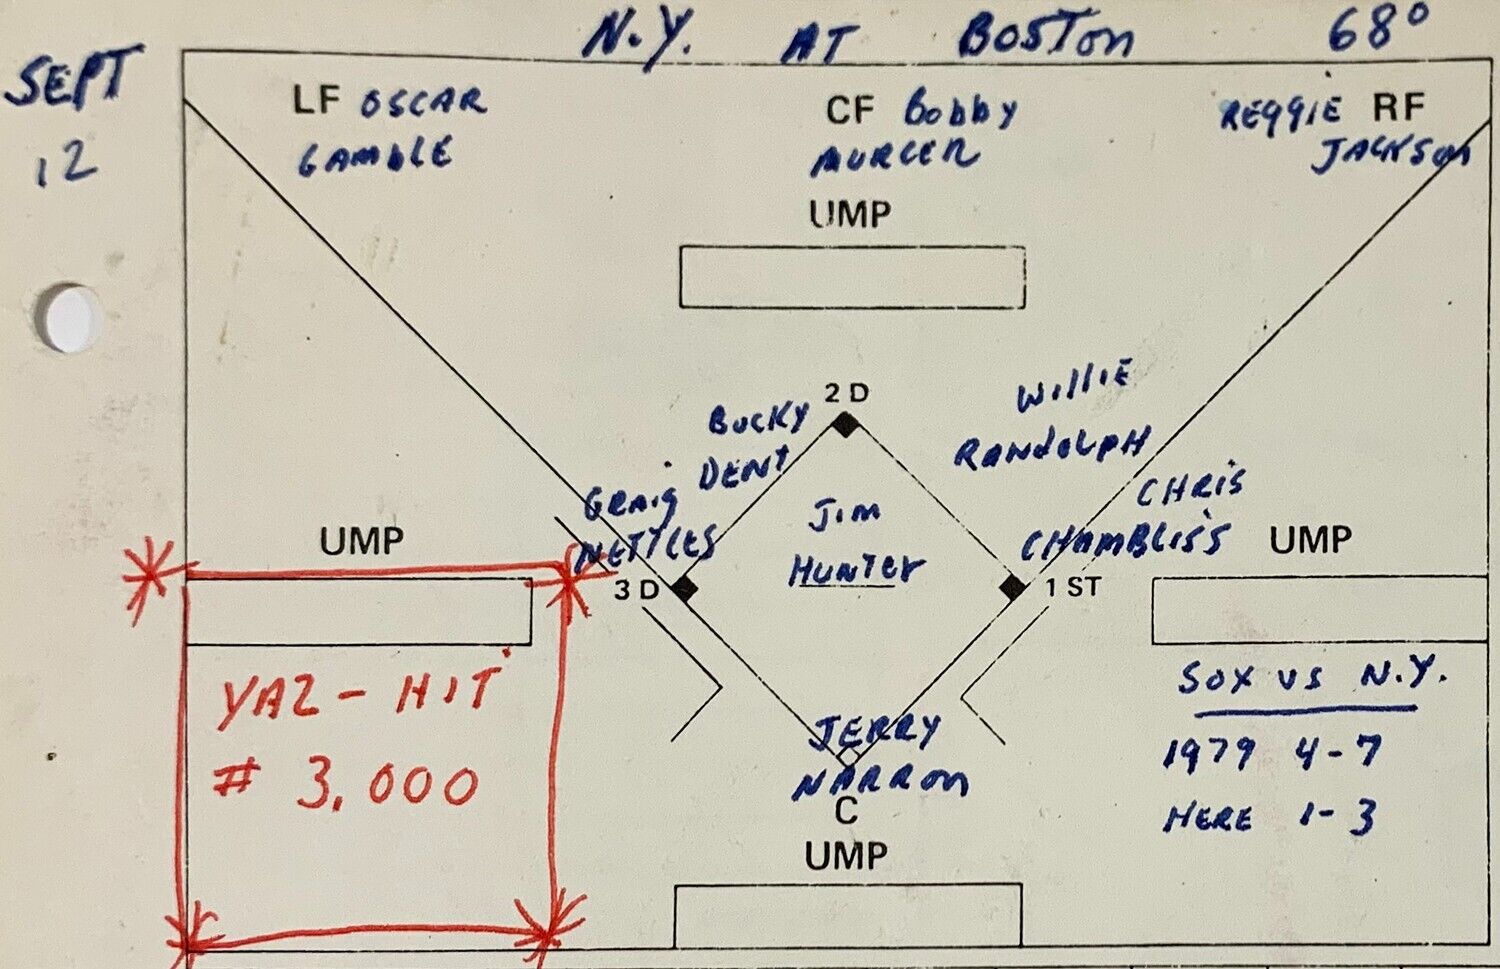 N.Y. AT BOSTON 68°
SEPT
12
LF OSCAR
GAMBLE
CF BOBBY
MURCER
REGGIE RF
JACKSON
UMP
2 D
BUCKY
DENT
WILLIE
RANDOLPH
GRAIG
NETTLES
3 D
JIM
HUNTER
CHRIS
CHAMBLISS
1 ST
UMP
UMP
YAZ - HIT
# 3,000
SOX VS N.Y.
1979 4-7
HERE 1-3
JERRY
NARRON
C
UMP